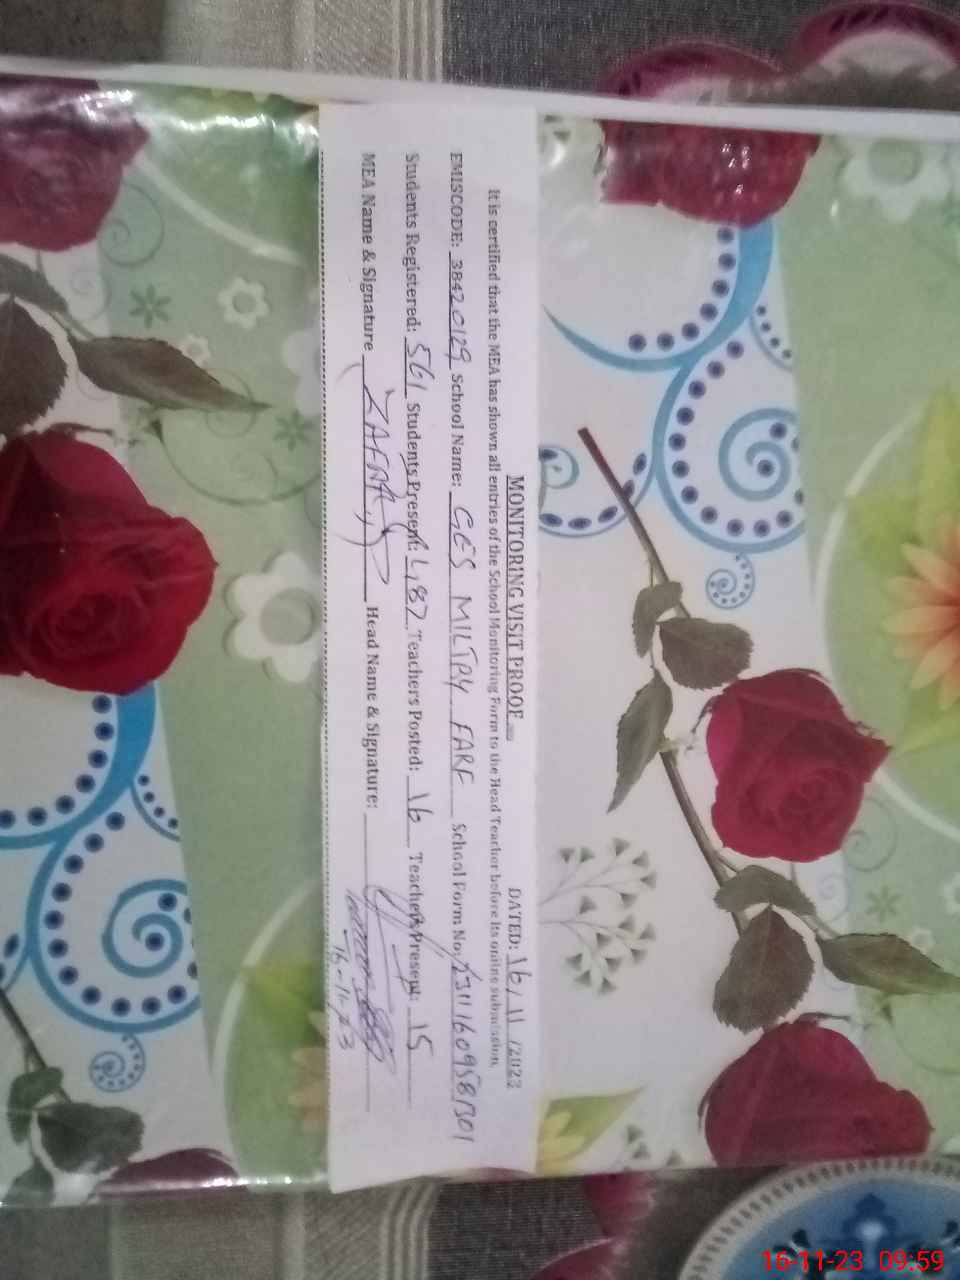 MONITORING VISIT PROOF DATED: 16/11/2023
It is certified that the MEA has shown all entries of the School Monitoring Form to the Head Teacher before its online submission.
EMISCODE: 38420129 School Name: GES MILTRY FARF School Form No:
Students Registered: 561 Students Present: 487 Teachers Posted: 16 Teachers Present: 15
MEA Name & Signature Head Name & Signature:
16-11-23
16-11-23 09:59